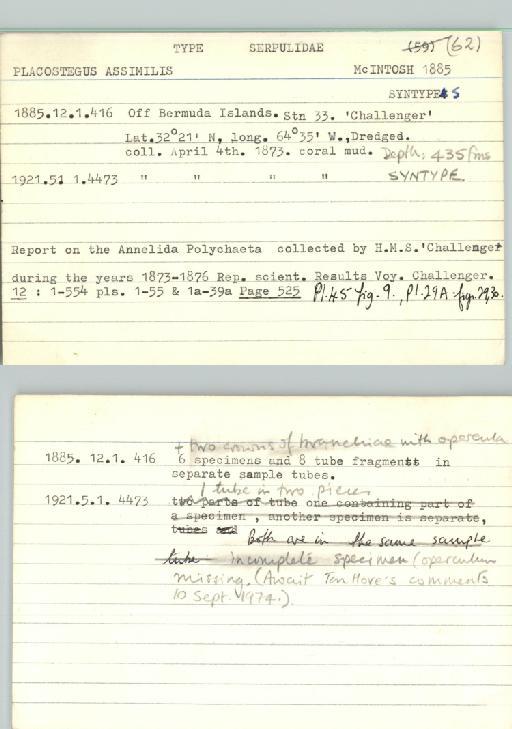 TYPE SERPULIDAE (59) (62)
PLACOSTEGUS ASSIMILIS McINTOSH 1885
SYNTYPES
1885.12.1.416 Off Bermuda Islands. Stn 33. 'Challenger'
Lat.32°21' N, long. 64°35' W.,Dredged.
coll. April 4th. 1873. coral mud. Depth: 435 fms
1921.51 1.4473 " " " " SYNTYPE
Report on the Annelida Polychaeta collected by H.M.S.'Challenger
during the years 1873-1876 Rep. scient. Results Voy. Challenger.
12 : 1-554 pls. 1-55 & 1a-39a Page 525 Pl.45 fig. 9., Pl.29A figs. 29,30.
+ two crowns of branchiae with opercula
1885. 12.1. 416 6 specimens and 8 tube fragments in
separate sample tubes.
1 tube in two pieces
1921.5.1. 4473 two parts of tube one containing part of
a specimen , another specimen is separate,
tubes and Both are in the same sample
tube incomplete specimen (operculum
missing. (Await Ten Hove's comments
10 Sept. 1974.)